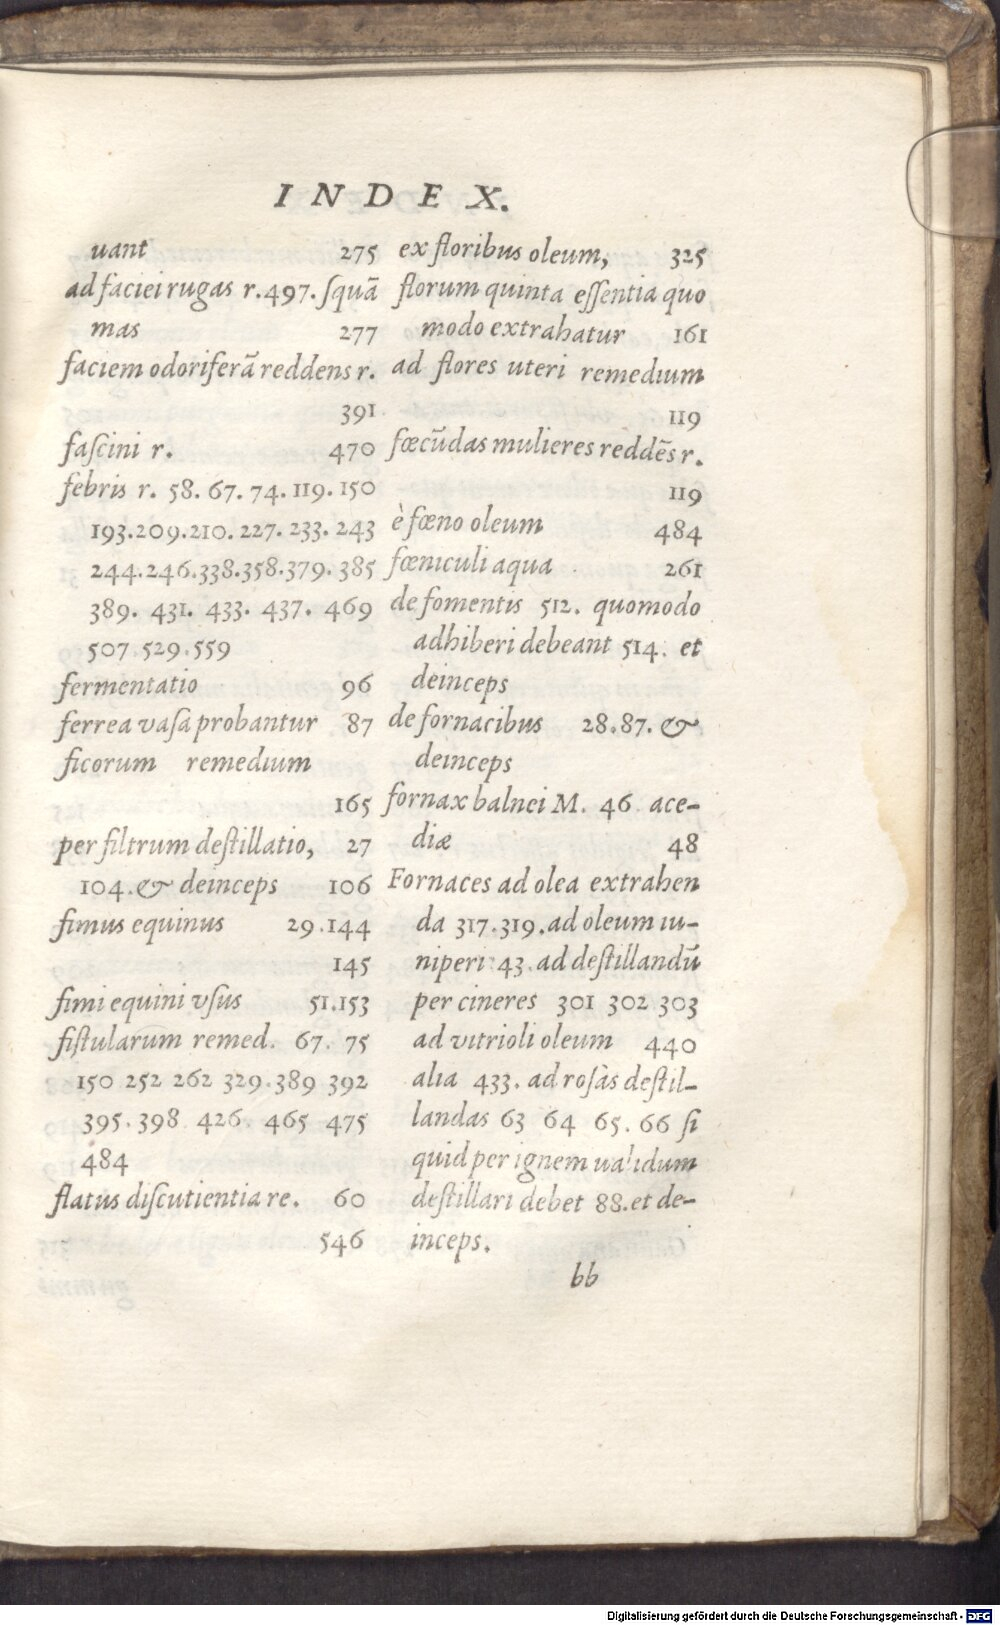 INDEX.
uant 275
ad faciei rugas r.497. squã
mas 277
faciem odoriferã reddens r.
391
fascini r. 470
febris r. 58. 67. 74. 119. 150
193.209.210. 227. 233. 243
244.246.338.358.379. 385
389. 431. 433. 437. 469
507.529.559
fermentatio 96
ferrea vasa probantur 87
ficorum remedium
165
per filtrum destillatio, 27
104.& deinceps 106
fimus equinus 29.144
145
fimi equini vsus 51.153
fistularum remed. 67. 75
150 252 262 329.389 392
395.398 426. 465 475
484
flatus discutientia re. 60
546
ex floribus oleum, 325
florum quinta essentia quo
modo extrahatur 161
ad flores uteri remedium
119
fœcũdas mulieres reddẽs r.
119
è fœno oleum 484
fœniculi aqua 261
de fomentis 512. quomodo
adhiberi debeant 514. et
deinceps
de fornacibus 28.87. &
deinceps
fornax balnei M. 46 ace-
diæ 48
Fornaces ad olea extrahen
da 317.319.ad oleum iu-
niperi 43 ad destillandũ
per cineres 301 302 303
ad vitrioli oleum 440
alia 433. ad rosàs destil-
landas 63 64 65. 66 si
quid per ignem ualidum
destillari debet 88.et de-
inceps.
bb
Digitalisierung gefördert durch die Deutsche Forschungsgemeinschaft - DFG